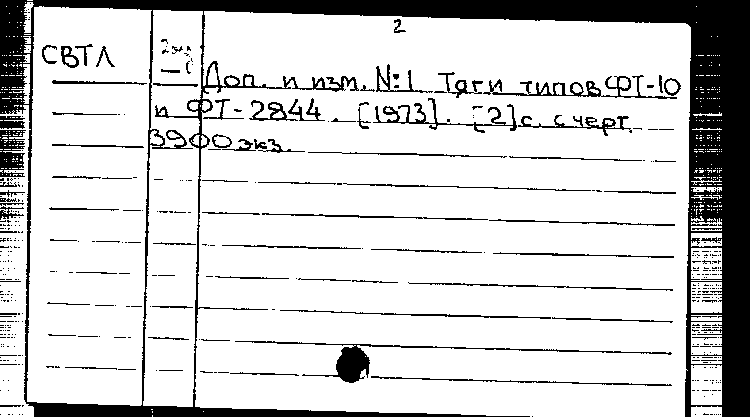 2
СВТЛ
2 экз
Доп. и изм. №1 Тяги типов ФТ-10
и ФТ-2844. [1973]. [2]с. с черт.
3900 экз.